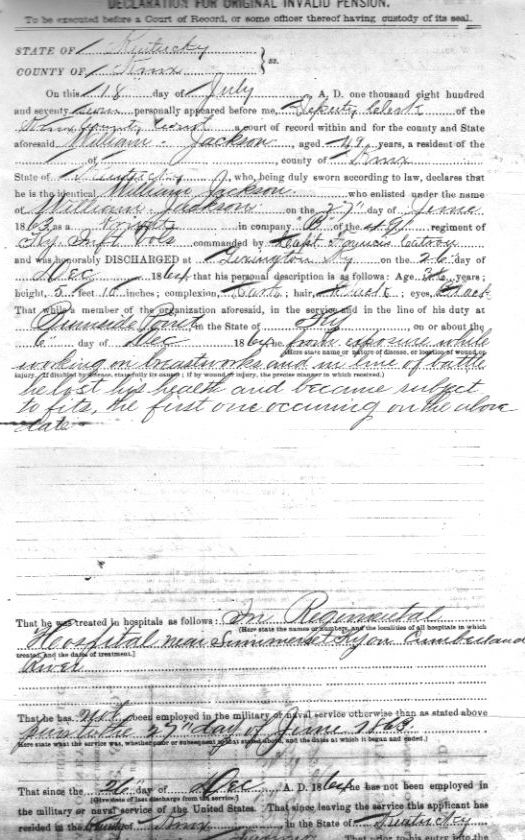 DECLARATION FOR ORIGINAL INVALID PENSION.
To be executed before a Court of Record, or some officer thereof having custody of its seal.
STATE OF Kentucky
COUNTY OF Knox } ss.
On this 18 day of July A. D. one thousand eight hundred
and seventy personally appeared before me, Deputy Clerk of the
Knox County Court a court of record within and for the county and State
aforesaid William Jackson, aged 49 years, a resident of the
of , county of Knox
State of Kentucky, who, being duly sworn according to law, declares that
he is the identical William Jackson who enlisted under the name
of William Jackson on the 27" day of June
1863 as a Private in company "B" of the 49 regiment of
Ky Inft Vols commanded by Capt Francis Catron
and was honorably DISCHARGED at Lexington Ky on the 26 day of
Dec 1864, that his personal description is as follows: Age years;
height, 5 feet 10 inches; complexion, Dark; hair, Black; eyes, Black
That while a member of the organization aforesaid, in the service and in the line of his duty at
in the State of Ky on or about the
6" day of Dec 1864 he from exposure while
(Here state name or nature of disease, or location of wound or
working on breastworks and in line of battle
injury. If disabled by disease, state fully its causes; if by wound or injury, the precise manner in which received.)
he lost his health and became subject
to fits, the first one occuring on the above
date
That he was treated in hospitals as follows: In Regimental
(Here state the names or numbers, and the localities of all hospitals in which
Hospital near Summerset Ky on Cumberland
treated, and the dates of treatment.)
River
That he has not been employed in the military or naval service otherwise than as stated above
27" day of June 1863
Here state what the service was, whether prior or subsequent to that stated above, and the dates at which it began and ended.)
That since the 26 day of Dec A. D. 1864 he has not been employed in
(Give date of last discharge from the service.)
the military or naval service of the United States. That since leaving the service this applicant has
resided in the County of Knox in the State of Kentucky